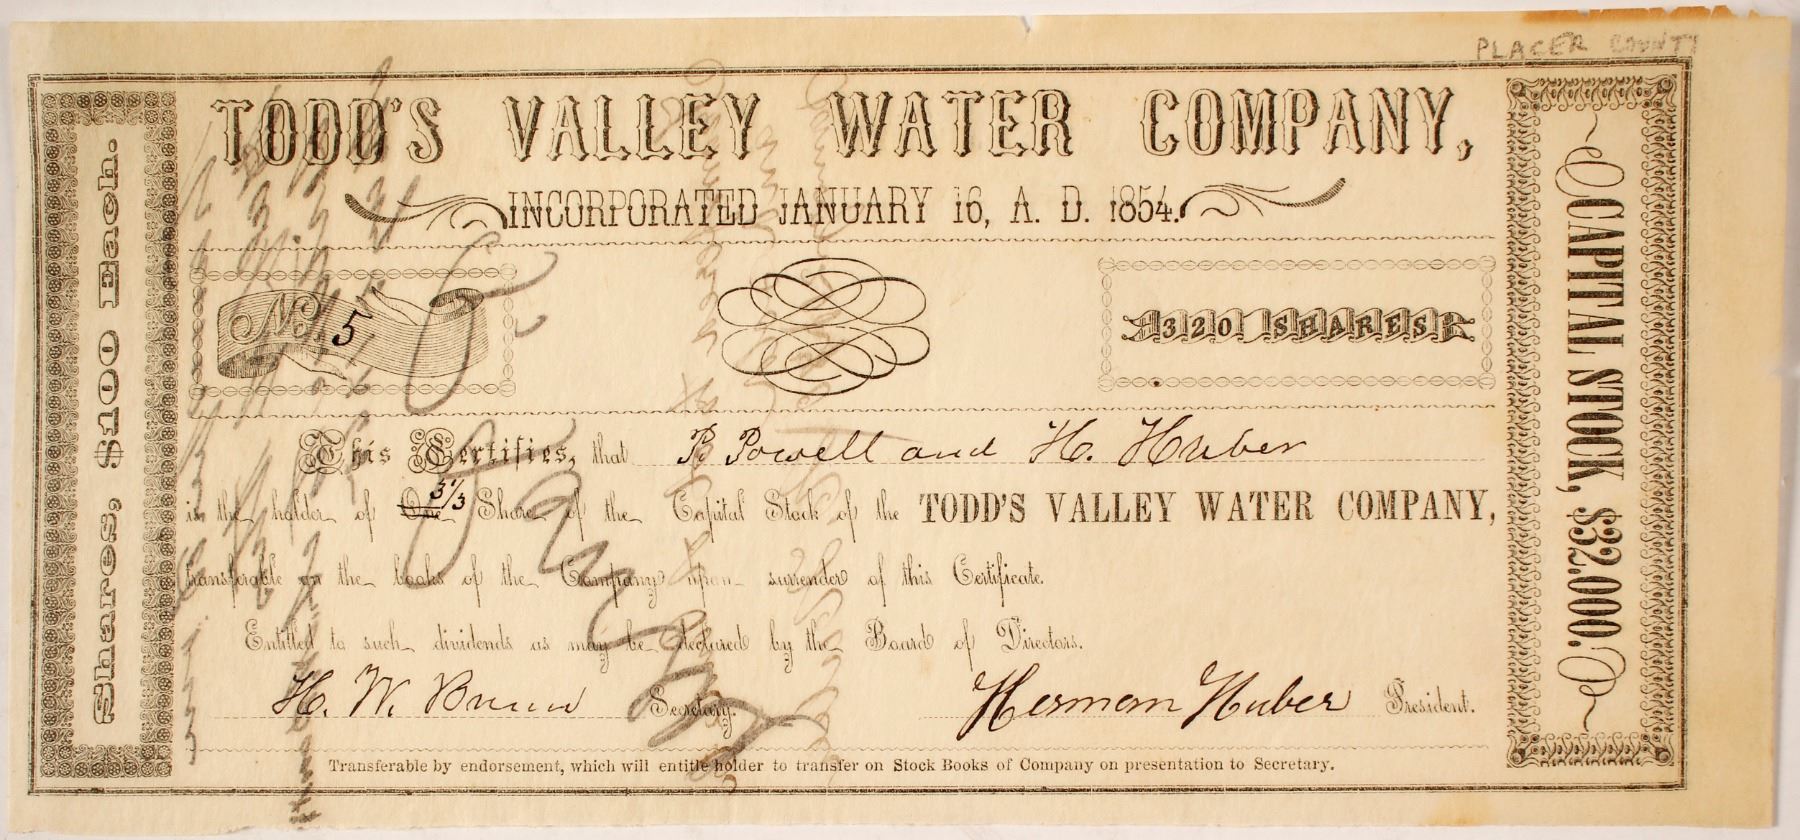 PLACER COUNTY
TODD'S VALLEY WATER COMPANY,
INCORPORATED JANUARY 16, A. D. 1854.
Shares, $100 Each.
No. 5
320 SHARES
CAPITAL STOCK, $32.000.
This Certifies, that P. Powell and H. Huber
is the holder of One 5 1/3 Share of the Capital Stock of the TODD'S VALLEY WATER COMPANY,
transferable on the books of the Company upon surrender of this Certificate.
Entitled to such dividends as may be declared by the Board of Directors.
H. W. Secretary. Herman Huber President.
Transferable by endorsement, which will entitle holder to transfer on Stock Books of Company on presentation to Secretary.